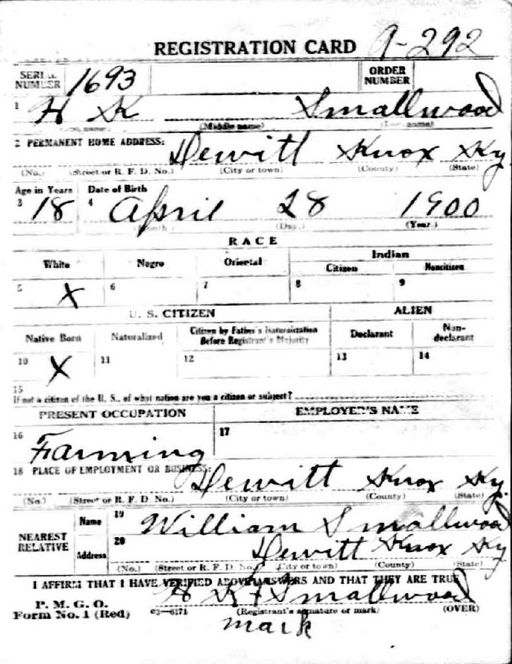 REGISTRATION CARD A-292
SERIAL NUMBER 1693 ORDER NUMBER
1 H K Smallwood
(Middle name) name)
2 PERMANENT HOME ADDRESS: Dewitt Knox Ky.
(No.) (Street or R. F. D. No.) (City or town) (County) (State)
Age in Years Date of Birth
3 18 4 April 28 1900
(Month) (Day) (Year)
RACE
White Negro Oriental Indian
Citizen Noncitizen
5 X 6 7 8 9
U. S. CITIZEN ALIEN
Native Born Naturalized Citizen by Father's Naturalization Before Registrant's Majority Declarant Non-declarant
10 X 11 12 13 14
15
If not a citizen of the U. S., of what nation are you a citizen or subject?
PRESENT OCCUPATION EMPLOYER'S NAME
16 Farming 17
18 PLACE OF EMPLOYMENT OR BUSINESS: Dewitt Knox Ky.
(No.) (Street or R. F. D. No.) (City or town) (County) (State)
NEAREST RELATIVE Name 19 William Smallwood
Address 20 Dewitt Knox Ky
(No.) (Street or R. F. D. No.) (City or town) (County) (State)
I AFFIRM THAT I HAVE VERIFIED ABOVE ANSWERS AND THAT THEY ARE TRUE
P. M. G. O.
Form No. 1 (Red) H K Smallwood
(Registrant's signature or mark) (OVER)
mark